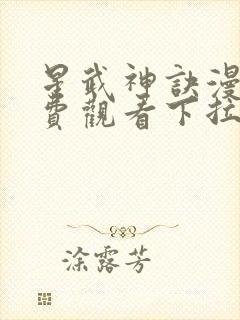 星武神訣漫
費觀看下拉
涂露芳